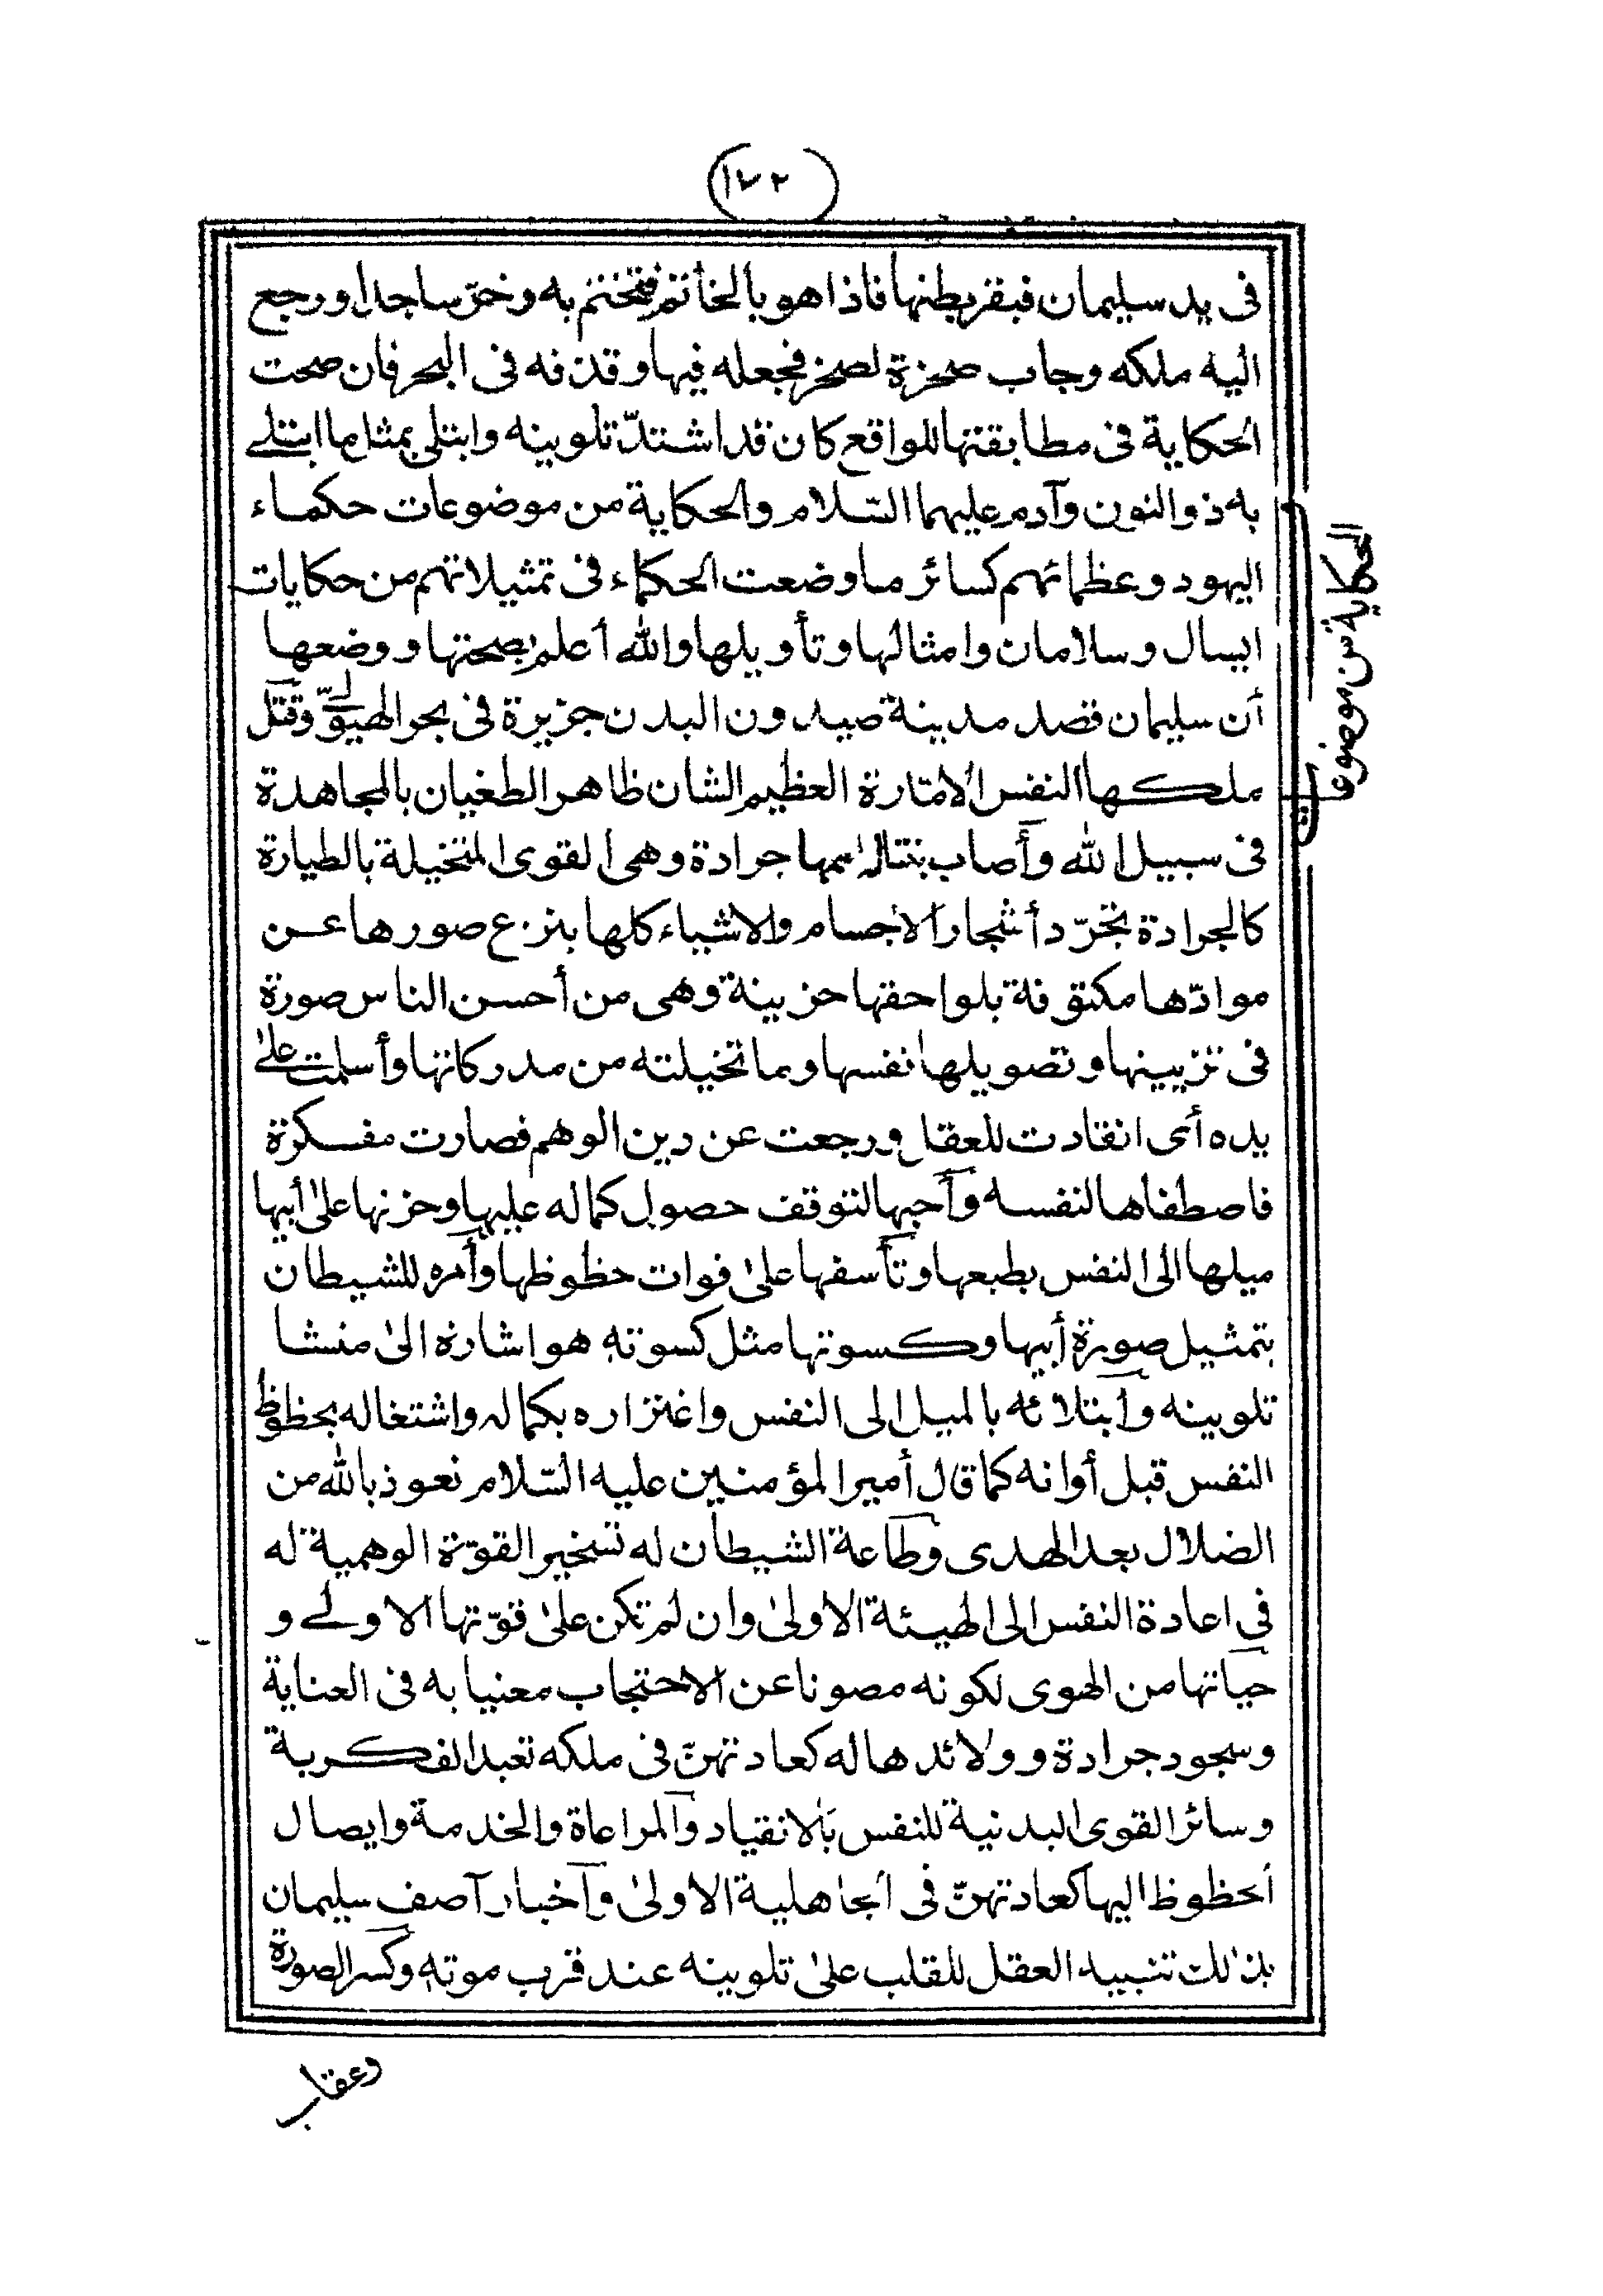 (١٧٢)
فى يد سليمان فبقر بطنها فاذا هو بالخاتم فتختم به وخرّ ساجدا ورجع
اليه ملكه وجاب صخرة لصخر فجعله فيها وقذفه فى البحر فان صحت
الحكاية فى مطابقتها للواقع كان قد اشتدّ تلوينه وابتلى بمثل ما ابتلے
به ذو النون وآدم عليهما السّلام والحكاية من موضوعات حكماء
اليهود وعظمائهم كسائر ما وضعت الحكماء فى تمثيلاتهم من حكايات
ابسال وسلامان وامثالها وتأويلها والله أعلم بصحتها ووضعها
أن سليمان قصد مدينة صيدون البدن جزيرة فى بحر الهيولےّ وقتل
ملكها النفس الامّارة العظيم الشان ظاهر الطغيان بالمجاهدة
فى سبيل الله وأصاب بنتا لها اسمها جرادة وهى القوى المتخيلة بالطيارة
كالجرادة تجرّد أشجار الاجسام والاشياء كلها بنزع صورها عن
موادّها مكتوفة بلواحقها حزينة وهى من أحسن الناس صورة
فى تزيينها وتصويلها نفسها وبما تخيلته من مدركاتها وأسلمت على
يده أى انقادت للعقل ورجعت عن دين الوهم فصارت مفكرة
فاصطفاها لنفسه وأحبها لتوقف حصول كماله عليها وحزنها على أبيها
ميلها الى النفس بطبعها وتأسفها على فوات حظوظها وأمره للشيطان
بتمثيل صورة أبيها وكسوتها مثل كسوته هو اشارة الى منشا
تلوينه وابتلائه بالميل الى النفس واغتراره بكماله واشتغاله بحظوظ
النفس قبل أوانه كما قال أمير المؤمنين عليه السّلام نعوذ بالله من
الضلال بعد الهدى وطاعة الشيطان له تسخير القوّة الوهمية له
فى اعادة النفس الى الهيئة الاولى وان لم تكن على قوّتها الاولے و
حياتها من الهوى لكونه مصونا عن الاحتجاب معنيا به فى العناية
وسجود جرادة وولائدها له كعادتهنّ فى ملكه تعبد الفكرية
وسائر القوى البدنية للنفس بالانقياد والمراعاة والخدمة وايصال
الحظوظ اليها كعادتهنّ فى الجاهلية الاولى واخبار آصف سليمان
بذلك تنبيه العقل للقلب على تلوينه عند قرب موته وكسر الصورة
وعقاب
الحكاية من موضوعات